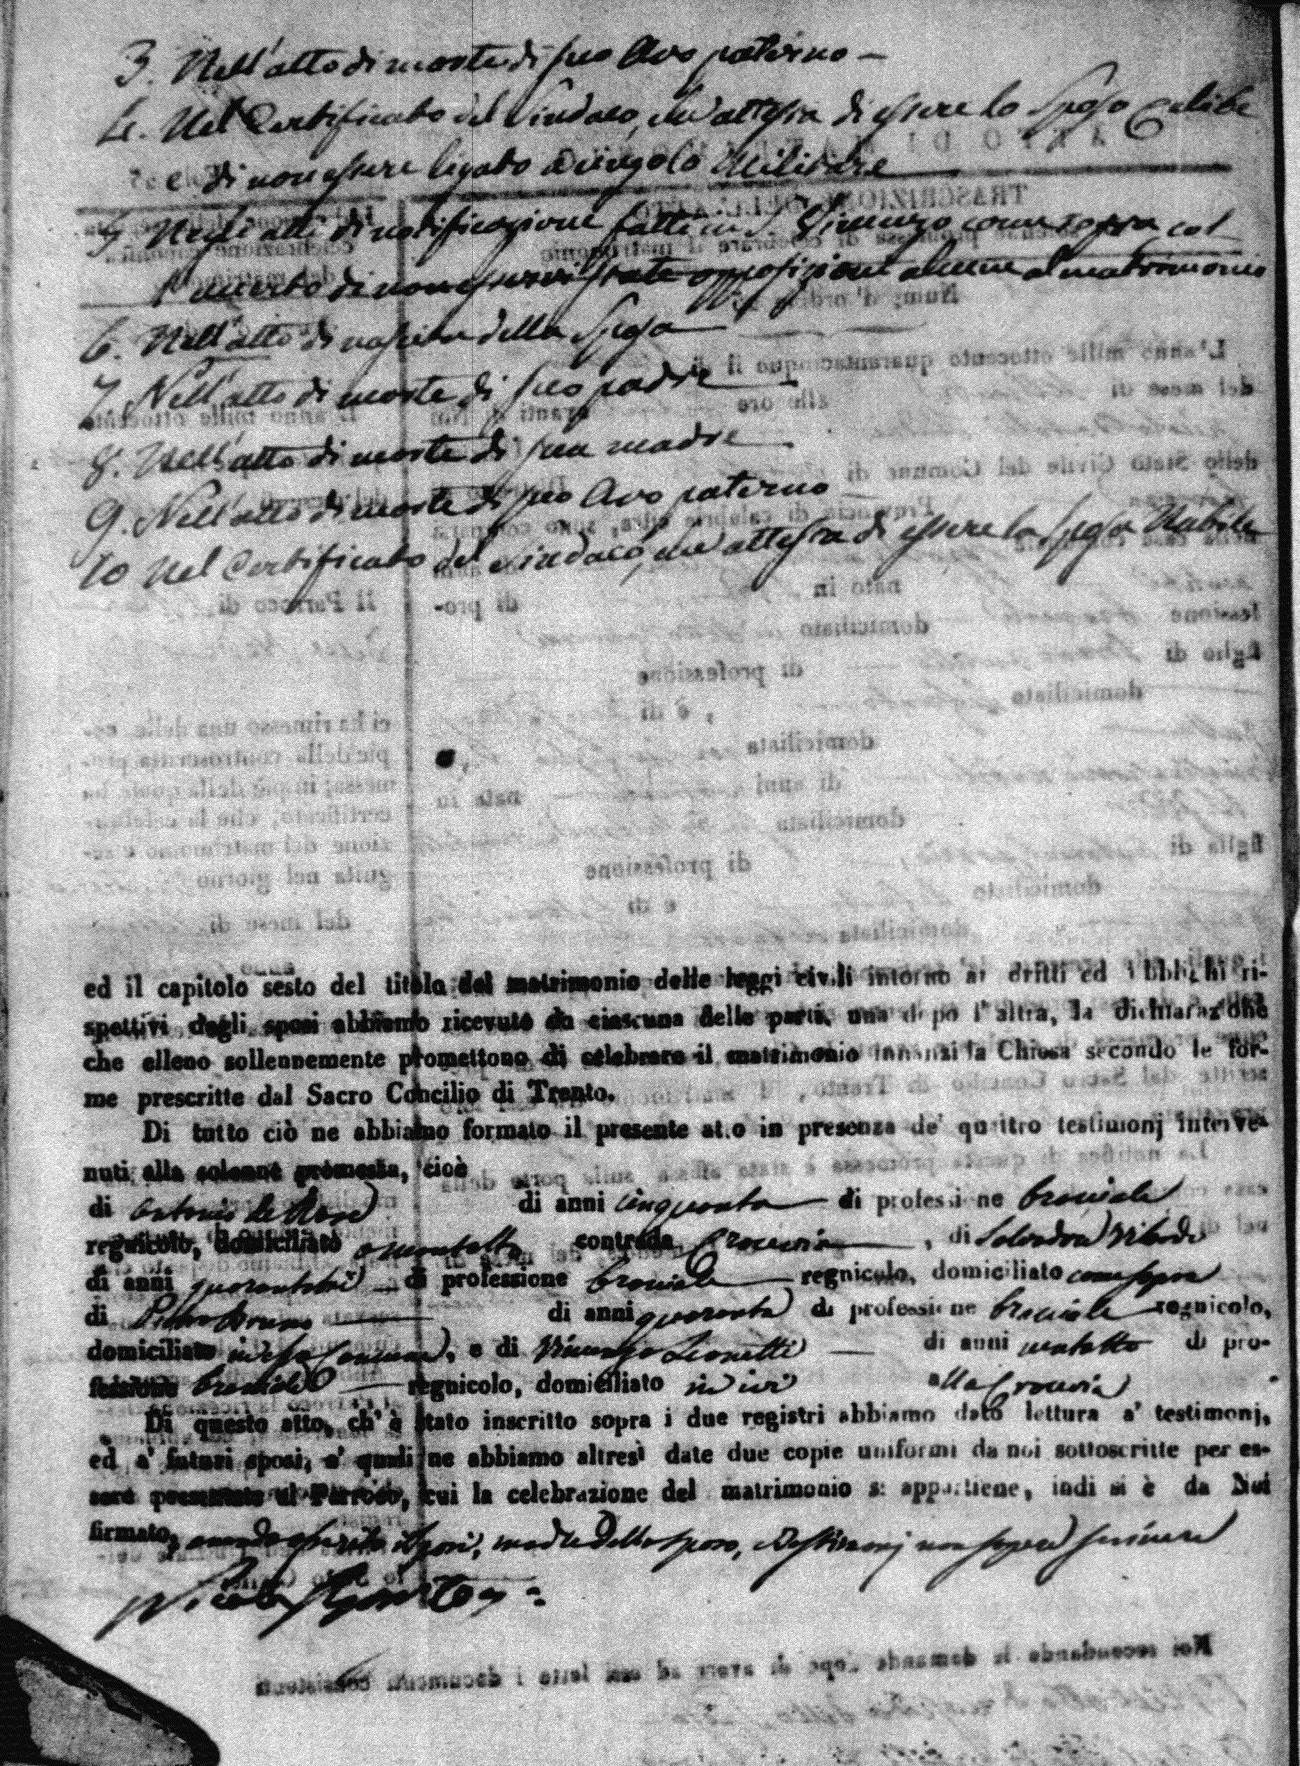 3. Nell'atto di morte di suo Avo paterno —
4. Nel Certificato del Sindaco, che attesta di essere lo Sposo Celibe
e di non essere legato a vingolo Militare
5. Negli atti di notificazione fatte in S. Vincenzo come sopra col
di non esservi state opposizioni alcune al matrimonio
6. Nell'atto di nascita della Sposa
7. Nell'atto di morte di suo padre
8. Nell'atto di morte di sua madre
9. Nell'atto di morte di suo Avo paterno
10 Nel Certificato del Sindaco, che attesta di essere la Sposa Nubile
ed il capitolo sesto del titolo del matrimonio delle leggi civili intorno ai dritti ed obblighi ri-
spettivi degli sposi abbiamo ricevuto da ciascuna delle parti, una dopo l'altra, la dichiarazione
che elleno sollennemente promettono di celebrare il matrimonio innanzi la Chiesa secondo le for-
me prescritte dal Sacro Concilio di Trento.
Di tutto ciò ne abbiamo formato il presente atto in presenza de' quattro testimonj interve-
nuti alla solenne promessa, cioè
di Antonio de di anni cinquanta di professione bracciale
regnicolo, domiciliato a Montalto contrada , di Salvadore
di anni di professione bracciale regnicolo, domiciliato come sopra
di Pietro Bruno di anni quaranta di professione bracciale regnicolo,
domiciliato in essa Comune, e di Vincenzo Leonetti di anni ventotto di pro-
fessione bracciale regnicolo, domiciliato in ivi alla
Di questo atto, ch'è stato inscritto sopra i due registri abbiamo dato lettura a' testimonj,
ed a' futuri sposi, a' quali ne abbiamo altresì date due copie uniformi da noi sottoscritte per es-
sere presentate al Parroco, cui la celebrazione del matrimonio si appartiene, indi si è da Noi
firmato, avendo asserito i sposi, madre dello sposo, e testimonj non sapere scrivere
Nicola